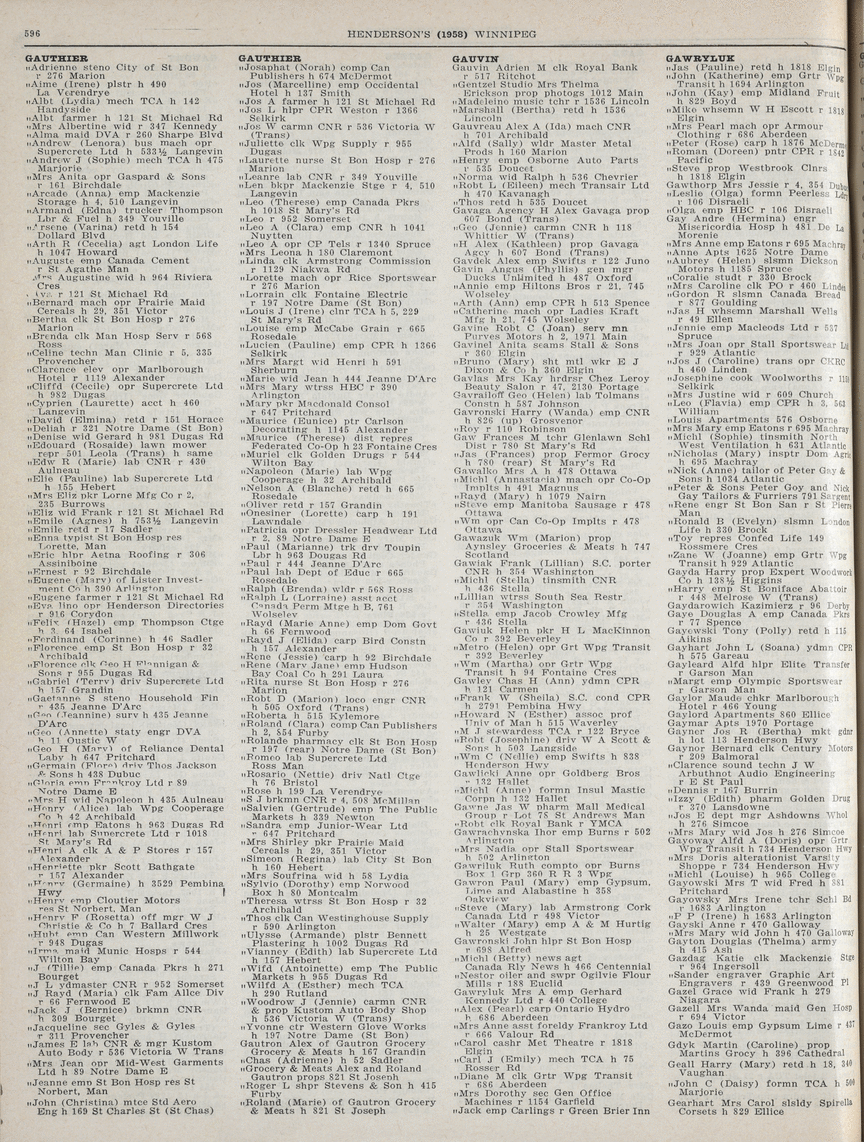 596
HENDERSON'S (1958) WINNIPEG
GAUTHIER
"Adrienne steno City of St Bon
r 276 Marion
"Aime (Irene) plstr h 490
La Verendrye
"Albt (Lydia) mech TCA h 142
Handyside
"Albt farmer h 121 St Michael Rd
"Mrs Albertine wid r 347 Kennedy
"Alma maid DVA r 260 Sharpe Blvd
"Andrew (Lenora) bus mach opr
Supercrete Ltd h 533½ Langevin
"Andrew J (Sophie) mech TCA h 475
Marjorie
"Mrs Anita opr Gaspard & Sons
r 161 Birchdale
"Arcade (Anna) emp Mackenzie
Storage h 4, 510 Langevin
"Armand (Edna) trucker Thompson
Lbr & Fuel h 349 Youville
"Arsene (Varina) retd h 154
Dollard Blvd
"Arth R (Cecelia) agt London Life
h 1047 Howard
"Auguste emp Canada Cement
r St Agathe Man
"Mrs Augustine wid h 964 Riviera
Cres
r 121 St Michael Rd
"Bernard mach opr Prairie Maid
Cereals h 29, 351 Victor
"Bertha clk St Bon Hosp r 276
Marion
"Brenda clk Man Hosp Serv r 568
Ross
"Celine techn Man Clinic r 5, 335
Provencher
"Clarence elev opr Marlborough
Hotel r 1119 Alexander
"Cliffd (Cecile) opr Supercrete Ltd
h 982 Dugas
"Cyprien (Laurette) acct h 460
Langevin
"David (Elmina) retd r 151 Horace
"Deliah r 321 Notre Dame (St Bon)
"Denise wid Gerard h 981 Dugas Rd
"Edouard (Rosaide) lawn mower
repr 501 Leola (Trans) h same
"Edw R (Marie) lab CNR r 430
Aulneau
"Elie (Pauline) lab Supercrete Ltd
h 155 Hebert
"Mrs Eliz pkr Lorne Mfg Co r 2,
235 Burrows
"Eliz wid Frank r 121 St Michael Rd
"Emile (Agnes) h 753½ Langevin
"Emile retd r 17 Sadler
"Enna typist St Bon Hosp res
Lorette, Man
"Eric hlpr Aetna Roofing r 306
Assiniboine
"Ernest r 92 Birchdale
"Eugene (Mary) of Lister Invest-
ment Co h 390 Arlington
"Eugene farmer r 121 St Michael Rd
"Eva lino opr Henderson Directories
r 916 Corydon
"Felix (Hazel) emp Thompson Ctge
h 3, 64 Isabel
"Ferdinand (Corinne) h 46 Sadler
"Florence emp St Bon Hosp r 32
Archibald
"Florence clk Geo H Flannigan &
Sons r 955 Dugas Rd
"Gabriel (Terry) driv Supercrete Ltd
h 157 Grandin
"Gaetanne S steno Household Fin
r 435 Jeanne D'Arc
"Geo (Jeannine) surv h 435 Jeanne
D'Arc
"Geo (Annette) staty engr DVA
h 11 Ostic W
"Geo H (Mary) of Reliance Dental
Laby h 647 Pritchard
"Germain (Flore) driv Thos Jackson
& Sons h 438 Dubuc
"Gloria emp Frankroy Ltd r 89
Notre Dame E
"Mrs H wid Napoleon h 435 Aulneau
"Henry (Alice) lab Wpg Cooperage
Co h 42 Archibald
"Henri emp Eatons h 963 Dugas Rd
"Henri lab Supercrete Ltd r 1018
St Mary's Rd
"Henri A clk A & P Stores r 157
Alexander
"Henriette pkr Scott Bathgate
r 157 Alexander
"Henry (Germaine) h 3529 Pembina
Hwy
"Henry emp Cloutier Motors
res St Norbert, Man
"Henry F (Rosetta) off mgr W J
Christie & Co h 7 Ballard Cres
"Hubt emp Can Western Millwork
r 948 Dugas
"Irma maid Munic Hosps r 544
Wilton Bay
"J (Tillie) emp Canada Pkrs h 271
Bourget
"J L ydmaster CNR r 952 Somerset
"J Rayd (Maria) clk Fam Allce Div
r 66 Fernwood E
"Jack J (Bernice) brkmn CNR
h 309 Bourget
"Jacqueline sec Gyles & Gyles
r 311 Provencher
"James E lab CNR & mgr Kustom
Auto Body r 536 Victoria W Trans
"Mrs Jean opr Mid-West Garments
Ltd h 89 Notre Dame E
"Jeanne emp St Bon Hosp res St
Norbert, Man
"John (Christina) mtce Std Aero
Eng h 169 St Charles St (St Chas)
GAUTHIER
"Josaphat (Norah) comp Can
Publishers h 674 McDermot
"Jos (Marcelline) emp Occidental
Hotel h 137 Smith
"Jos A farmer h 121 St Michael Rd
"Jos L hlpr CPR Weston r 1366
Selkirk
"Jos W carmn CNR r 536 Victoria W
(Trans)
"Juliette clk Wpg Supply r 955
Dugas
"Laurette nurse St Bon Hosp r 276
Marion
"Leanre lab CNR r 349 Youville
"Len bkpr Mackenzie Stge r 4, 510
Langevin
"Leo (Therese) emp Canada Pkrs
h 1018 St Mary's Rd
"Leo r 952 Somerset
"Leo A (Clara) emp CNR h 1041
Nuytten
"Leo A opr CP Tels r 1340 Spruce
"Mrs Leona h 180 Claremont
"Linda clk Armstrong Commission
r 1129 Niakwa Rd
"Lorette mach opr Rice Sportswear
r 276 Marion
"Lorrain clk Fontaine Electric
r 197 Notre Dame (St Bon)
"Louis J (Irene) clnr TCA h 5, 229
St Mary's Rd
"Louise emp McCabe Grain r 665
Rosedale
"Lucien (Pauline) emp CPR h 1366
Selkirk
"Mrs Margt wid Henri h 591
Sherburn
"Marie wid Jean h 444 Jeanne D'Arc
"Mrs Mary wtrss HBC r 390
Arlington
"Mary pkr Macdonald Consol
r 647 Pritchard
"Maurice (Eunice) ptr Carlson
Decorating h 1145 Alexander
"Maurice (Therese) dist repres
Federated Co-Op h 23 Fontaine Cres
"Muriel clk Golden Drugs r 544
Wilton Bay
"Napoleon (Marie) lab Wpg
Cooperage h 32 Archibald
"Nelson A (Blanche) retd h 665
Rosedale
"Oliver retd r 157 Grandin
"Onesiner (Lorette) carp h 191
Lawndale
"Patricia opr Dressler Headwear Ltd
r 2, 89 Notre Dame E
"Paul (Marianne) trk drv Toupin
Lbr h 963 Dougas Rd
"Paul r 444 Jeanne D'Arc
"Paul lab Dept of Educ r 665
Rosedale
"Ralph (Brenda) wldr r 568 Ross
"Ralph L (Lorraine) asst acct
Canada Perm Mtge h B, 761
Wolseley
"Rayd (Marie Anne) emp Dom Govt
h 66 Fernwood
"Rayd J (Elida) carp Bird Constn
h 157 Alexander
"Rene (Jessie) carp h 92 Birchdale
"Rene (Mary Jane) emp Hudson
Bay Coal Co h 291 Laura
"Rita nurse St Bon Hosp r 276
Marion
"Robt D (Marion) loco engr CNR
h 505 Oxford (Trans)
"Roberta h 515 Kylemore
"Roland (Clara) comp Can Publishers
h 2, 854 Furby
"Rolande pharmacy clk St Bon Hosp
r 197 (rear) Notre Dame (St Bon)
"Romeo lab Supercrete Ltd
Ross Man
"Rosario (Nettie) driv Natl Ctge
h 76 Bristol
"Rose h 199 La Verendrye
"S J brkmn CNR r 4, 508 McMillan
"Salvien (Gertrude) emp The Public
Markets h 339 Newton
"Sandra emp Junior-Wear Ltd
r 647 Pritchard
"Mrs Shirley pkr Prairie Maid
Cereals h 29, 351 Victor
"Simeon (Regina) lab City St Bon
h 160 Hebert
"Mrs Soufrina wid h 58 Lydia
"Sylvio (Dorothy) emp Norwood
Box h 80 Montcalm
"Theresa wtrss St Bon Hosp r 32
Archibald
"Thos clk Can Westinghouse Supply
r 590 Arlington
"Ulysse (Armande) plstr Bennett
Plastering h 1002 Dugas Rd
"Vianney (Edith) lab Supercrete Ltd
h 157 Hebert
"Wifd (Antoinette) emp The Public
Markets h 955 Dugas Rd
"Wilfd A (Esther) mech TCA
h 290 Rutland
"Woodrow J (Jennie) carmn CNR
& prop Kustom Auto Body Shop
h 536 Victoria W (Trans)
"Yvonne ctr Western Glove Works
h 197 Notre Dame (St Bon)
Gautron Alex of Gautron Grocery
Grocery & Meats h 167 Grandin
"Chas (Adrienne) h 53 Sadler
"Grocery & Meats Alex and Roland
Gautron props 821 St Joseph
"Roger L shpr Stevens & Son h 415
Furby
"Roland (Marie) of Gautron Grocery
& Meats h 821 St Joseph
GAUVIN
Gauvin Adrien M clk Royal Bank
r 517 Ritchot
"Gentzel Studio Mrs Thelma
Erickson prop photogs 1012 Main
"Madeleine music tchr r 1536 Lincoln
"Marshall (Bertha) retd h 1536
Lincoln
Gauvreau Alex A (Ida) mach CNR
h 701 Archibald
"Alfd (Sally) wldr Master Metal
Prods h 160 Marion
"Henry emp Osborne Auto Parts
r 535 Doucet
"Norma wid Ralph h 536 Chevrier
"Robt L (Eileen) mech Transair Ltd
h 470 Kavanagh
"Thos retd h 535 Doucet
Gavaga Agency H Alex Gavaga prop
607 Bond (Trans)
"Geo (Jennie) carmn CNR h 118
Whittier W (Trans)
"H Alex (Kathleen) prop Gavaga
Agcy h 607 Bond (Trans)
Gavdek Alex emp Swifts r 122 Juno
Gavin Angus (Phyllis) gen mgr
Ducks Unlimited h 487 Oxford
"Annie emp Hiltons Bros r 21, 745
Wolseley
"Arth (Ann) emp CPR h 513 Spence
"Catherine mach opr Ladies Kraft
Mfg h 21, 745 Wolseley
Gavine Robt C (Joan) serv mn
Purves Motors h 2, 1971 Main
Gavinel Anita seams Stall & Sons
r 360 Elgin
"Bruno (Mary) sht mtl wkr E J
Dixon & Co h 360 Elgin
Gavlas Mrs Kay hrdrsr Chez Leroy
Beauty Salon r 47, 2130 Portage
Gavrailoff Geo (Helen) lab Tolmans
Constn h 587 Johnson
Gavronski Harry (Wanda) emp CNR
h 826 (up) Grosvenor
"Roy r 110 Robinson
Gaw Frances M tchr Glenlawn Schl
Dist r 780 St Mary's Rd
"Jas (Frances) prop Fermor Grocy
h 780 (rear) St Mary's Rd
Gawalko Mrs A h 478 Ottawa
"Michl (Annastacia) mach opr Co-Op
Implts h 491 Magnus
"Rayd (Mary) h 1079 Nairn
"Steve emp Manitoba Sausage r 478
Ottawa
"Wm opr Can Co-Op Implts r 478
Ottawa
Gawazuk Wm (Marion) prop
Aynsley Groceries & Meats h 747
Scotland
Gawiak Frank (Lillian) S.C. porter
CNR h 354 Washington
"Michl (Stella) tinsmith CNR
h 436 Stella
"Lillian wtrss South Sea Restr
r 354 Washington
"Stella emp Jacob Crowley Mfg
r 436 Stella
Gawiuk Helen pkr H L MacKinnon
Co r 392 Beverley
"Metro (Helen) opr Grt Wpg Transit
r 392 Beverley
"Wm (Martha) opr Grtr Wpg
Transit h 94 Fontaine Cres
Gawley Chas H (Ann) ydmn CPR
h 121 Carmen
"Frank W (Sheila) S.C. cond CPR
h 2791 Pembina Hwy
"Howard N (Esther) assoc prof
Univ of Man h 515 Waverley
"M J stewardess TCA r 122 Bryce
"Robt (Josephine) driv W A Scott &
Sons h 503 Langside
"Wm C (Nellie) emp Swifts h 838
Henderson Hwy
Gawlicki Anne opr Goldberg Bros
r 132 Hallet
"Michl (Anne) formn Insul Mastic
Corpn h 132 Hallet
Gawne Jas W pharm Mall Medical
Group r Lot 78 St Andrews Man
"Robt clk Royal Bank r YMCA
Gawrachynska Ihor emp Burns r 502
Arlington
"Mrs Nadia opr Stall Sportswear
h 502 Arlington
Gawriluk Ruth compto opr Burns
Box 1 Grp 360 R R 3 Wpg
Gawron Paul (Mary) emp Gypsum,
Lime and Alabastine h 358
Oakview
"Steve (Mary) lab Armstrong Cork
Canada Ltd r 498 Victor
"Walter (Mary) emp A & M Hurtig
h 25 Westgate
Gawronski John hlpr St Bon Hosp
r 698 Alfred
"Michl (Betty) news agt
Canada Rly News h 466 Centennial
"Nestor oiler and swpr Ogilvie Flour
Mills r 188 Euclid
Gawryluk Mrs A emp Gerhard
Kennedy Ltd r 440 College
"Alex (Pearl) carp Ontario Hydro
h 686 Aberdeen
"Mrs Anne asst foreldy Frankroy Ltd
r 666 Valour Rd
"Carol cashr Met Theatre r 1818
Elgin
"Carl J (Emily) mech TCA h 75
Rosser Rd
"Diane M clk Grtr Wpg Transit
r 686 Aberdeen
"Mrs Dorothy sec Gen Office
Machines r 1154 Garfield
"Jack emp Carlings r Green Brier Inn
GAWRYLUK
"Jas (Pauline) retd h 1818 Elgin
"John (Katherine) emp Grtr Wpg
Transit h 1694 Arlington
"John (Kay) emp Midland Fruit
h 829 Boyd
"Mike whsemn W H Escott r 1818
Elgin
"Mrs Pearl mach opr Armour
Clothing r 686 Aberdeen
"Peter (Rose) carp h 1876
"Roman (Doreen) pntr CPR r 1842
Pacific
"Steve prop Westbrook Clnrs
h 1818 Elgin
Gawthorp Mrs Jessie r 4, 354
"Leslie (Olga) formn Peerless
r 106 Disraeli
"Olga emp HBC r 106 Disraeli
Gay Andre (Hermina) engr
Misericordia Hosp h 481 De La
Morenie
"Mrs Anne emp Eatons r 695 Machray
"Anne Apts 1625 Notre Dame
"Aubrey (Helen) slsmn Dickson
Motors h 1185 Spruce
"Coralie studt r 330 Brock
"Mrs Caroline clk PO r 460 Linden
"Gordon R slsmn Canada Bread
r 877 Goulding
"Jas H whsemn Marshall Wells
r 49 Ellen
"Jennie emp Macleods Ltd r 537
Spruce
"Mrs Joan opr Stall Sportswear Ltd
r 929 Atlantic
"Jos J (Caroline) trans opr CKRC
h 460 Linden
"Josephine cook Woolworths r
Selkirk
"Mrs Justine wid r 609 Church
"Leo (Flavia) emp CPR h 3,
William
"Louis Apartments 576 Osborne
"Mrs Mary emp Eatons r 695 Machray
"Michl (Sophie) tinsmith North
West Ventilation h 631 Atlantic
"Nicholas (Mary) insptr Dom
h 695 Machray
"Nick (Anne) tailor of Peter Gay &
Sons h 1034 Atlantic
"Peter & Sons Peter Goy and Nick
Gay Tailors & Furriers 791 Sargent
"Rene engr St Bon San r St
Man
"Ronald B (Evelyn) slsmn London
Life h 330 Brock
"Toy repres Confed Life 149
Rossmere Cres
"Zane W (Joanne) emp Grtr Wpg
Transit h 929 Atlantic
Gayda Harry prop Expert Woodwork
Co h 138½ Higgins
"Harry emp St Boniface Abattoir
r 448 Melrose W (Trans)
Gaydarowich Kazimierz r 96 Derby
Gaye Douglas A emp Canada Pkrs
r 77 Spence
Gayewski Tony (Polly) retd h 115
Aikins
Gayhart John L (Soana) ydmn CPR
h 575 Gareau
Gayleard Alfd hlpr Elite Transfer
r Garson Man
"Margt emp Olympic Sportswear
r Garson Man
Gaylor Maude chkr Marlborough
Hotel r 466 Young
Gaylord Apartments 860 Ellice
Gaymar Apts 1970 Portage
Gayner Jos R (Bertha) mkt gdnr
h lot 113 Henderson Hwy
Gaynor Bernard clk Century Motors
r 209 Balmoral
"Clarence sound techn J W
Arbuthnot Audio Engineering
r E St Paul
"Dennis r 167 Burrin
"Izzy (Edith) pharm Golden Drug
r 370 Lansdowne
"Jos E dept mgr Ashdowns Whol
h 276 Simcoe
"Mrs Mary wid Jos h 276 Simcoe
Gayoway Ald A (Doris) opr Grtr
Wpg Transit h 734 Henderson Hwy
"Mrs Doris alterationist Varsity
Shoppe r 734 Henderson Hwy
"Michl (Louise) h 965 College
Gayowski Mrs T wid Fred h 881
Pritchard
Gayowsky Mrs Irene tchr Schl Bd
r 1683 Arlington
"P P (Irene) h 1683 Arlington
Gayski Anne r 470 Galloway
"Mrs Mary wid John h 470 Galloway
Gayton Douglas (Thelma) army
h 415 Ash
Gazdag Katie clk Mackenzie Stge
r 964 Ingersoll
"Sander engraver Graphic Art
Engravers r 439 Greenwood Pl
Gazel Grace wid Frank h 279
Niagara
Gazell Mrs Wanda maid Gen Hosp
r 694 Victor
Gazo Louis emp Gypsum Lime r 437
McDermot
Gdyk Martin (Caroline) prop
Martins Grocy h 396 Cathedral
Geall Harry (Mary) retd h 18, 340
Vaughan
"John C (Daisy) formn TCA h
Jarvis
Gearhart Mrs Carol slsldy Spirella
Corsets h 829 Ellice